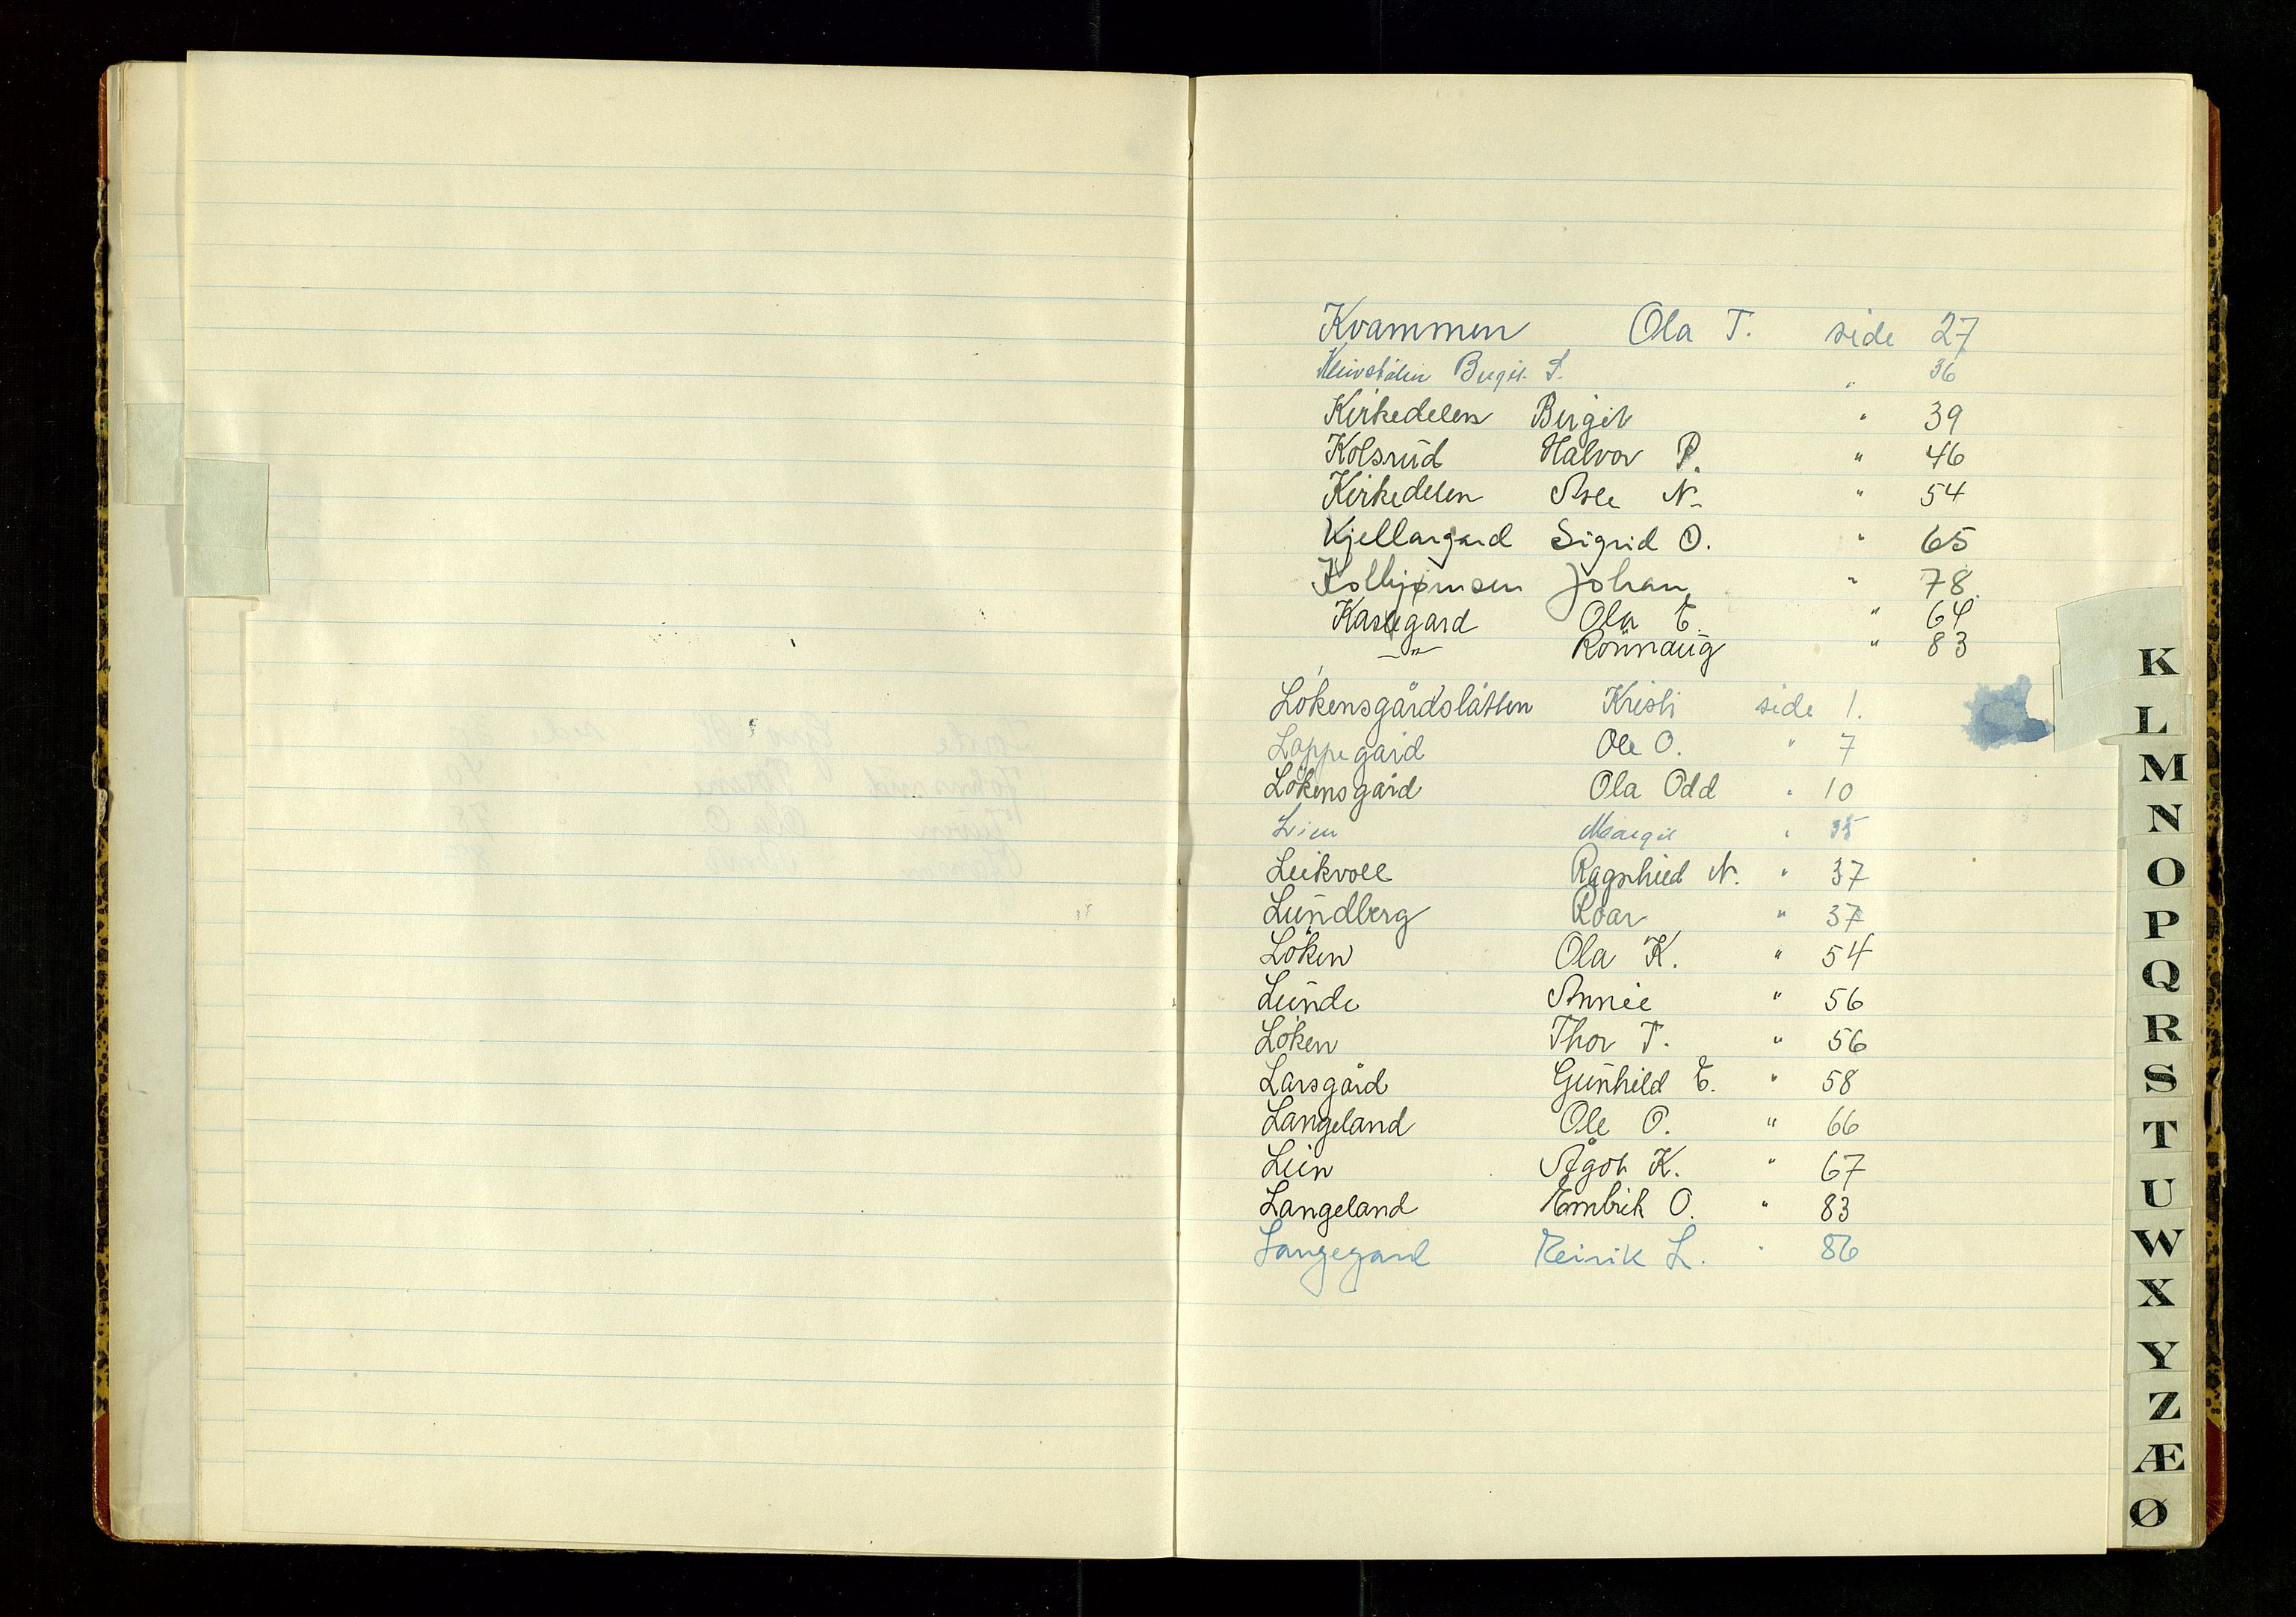 Kvammen Ola T. side 27
Kleivstølen Birgit S. " 36
Kirkedelen Birgit " 39
Kolsrud Halvor P. " 46
Kirkedelen Asle N. " 54
Kjellargard Sigrid O. " 65
Kolbjørnsen Johan " 78.
Kaslegard Ola E. " 64
—"— Rønnaug " 83
Lökensgårdslåtten Kristi side 1.
Loppegard Ole O. " 7
Lökensgård Ola Odd " 10
Lien Margit " 35
Leikvoll Ragnhild N. " 37
Lundberg Roar " 37
Löken Ola K. " 54
Lunde Annie " 56
Löken Thor T. " 56
Larsgård Gunhild E. " 58
Langeland Ole O. " 66
Lein Ågot K. " 67
Langeland Embrik O. " 83
Langegard Reirik L. " 86
K
L
M
N
O
P
Q
R
S
T
U
W
X
Y
Z
Æ
Ø